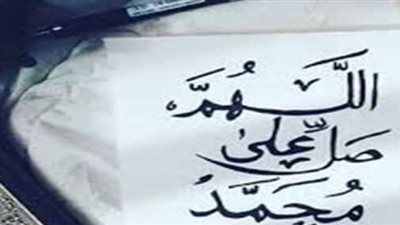 اللَّهُمَّ
صَلِّ عَلى
مُحَمَّدُ